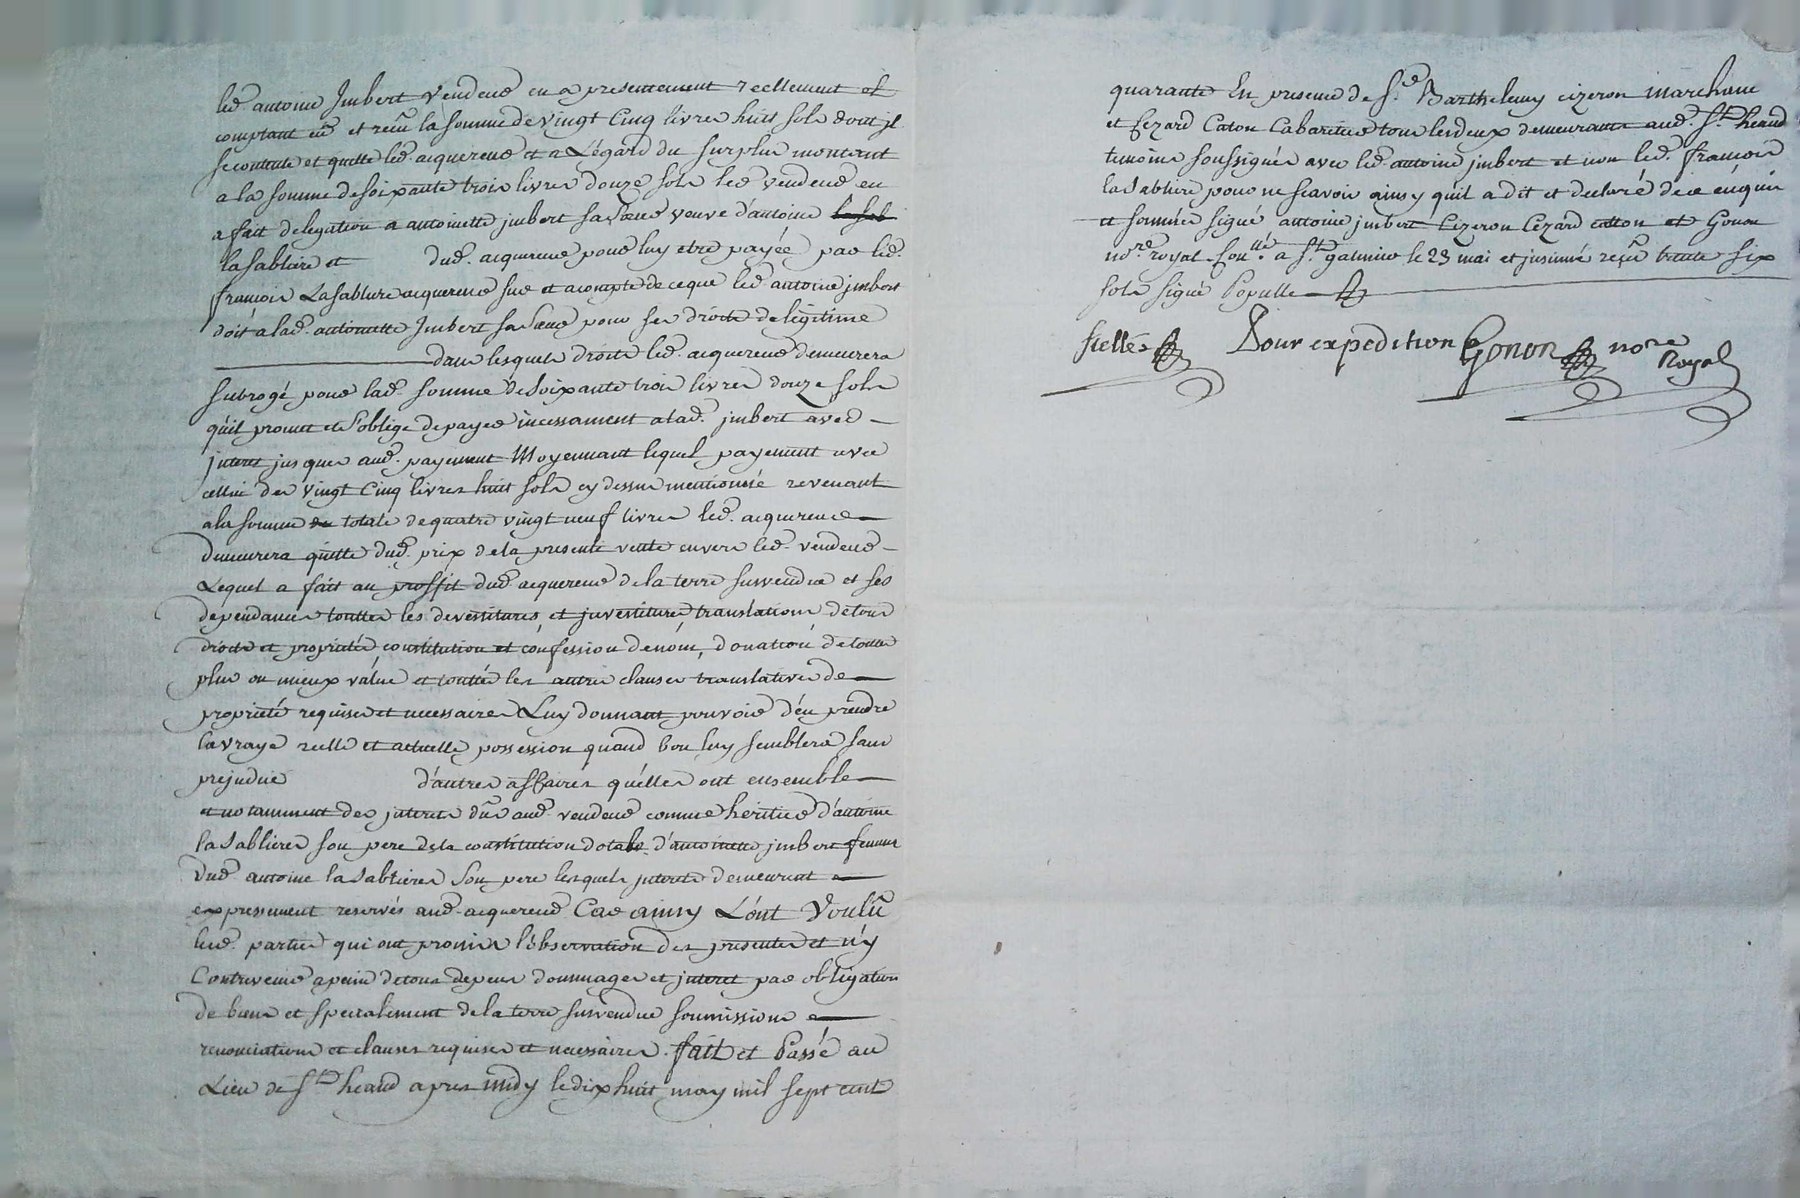 led. antoine Jmbert vendeur en a presentement reellement et
comptant eü et reçû la somme de vingt Cinq livres huit sols dont jl
se contente et quitte led. acquereur et a L'égard du surplus montant
a la somme de soixante trois livres douze sols led. vendeur en
a fait delegation a antoinette jmbert sa sœur veuve d'antoine
lasabliere et dud. acquereur pour luy etre payée par led.
françois Lasablere acquereur sur et acompte de ce que led. antoine jmbert
doit a lad. antoinette Jmbert sa sœur pour ses droits de légitime
dans lesquels droits led. acquereur demeurera
subrogé pour lad. somme de soixante trois livres douze sols
qu'il promet et s'oblige de payer incessament a lad. jmbert avec
jnteret jusques aud. payement Moyennant lequel payement avec
cellui des vingt Cinq livres huit sols cy dessus mentionné revenant
a la somme totale de quatre vingt neuf livres led. acquereur
demeurera quitte dud. prix de la presente vente envers led. vendeur
Lequel a fait au proffit dud. acquereur de la terre survendue et ses
dependances touttes les devestitures, et jnvestitures, translations de tous
droits et propriétés, constitution et confession de nom, donation de toutte
plus ou mieux value et toutte les autres clauses translatives de
propriété requises et necessaires Luy donnant pouvoir d'en prendre
la vraye reelle et actuelle possession quand bon luy semblera sans
prejudice d'autres affaires qu'elles ont ensemble
et notamment des jnterets dûs aud. vendeur comme heritier d'antoine
la Sablieres son pere de la constitution dotale d'antoinette jmbert femme
dud. antoine la Sablieres son pere lesquels jnterets demeurent
expressement reservés aud. acquereur Car ainsy L'ont Voulû
lesd. parties qui ont promis l'observation des presentes et n'y
Contrevenir a peine de tous depens dommages et jnteret par obligation
de biens et specialement de la terre survendue soumissions
renonciations et clauses requises et necessaires. fait et Passé au
Lieu de St. heand apres midy le dix huit may mil sept cent
quarante En presence de Sr. Barthelemy cizeron marchand
et Cezard Caton Cabaretier tous les deux demeurants aud. St. heand
temoins soussignés avec led. antoine jmbert et non led. françois
la Sablere pour ne scavoir ainsy qu'il a dit et declaré de ce enquis
et sommé signé antoine jmbert Cizeron Cézard catton et Gonon
nore. royal Conllé. a St. galmier le 23 mai et jnsinué reçu trente six
sols signé Populle
scellé Pour expedition Gonon nore
Royal